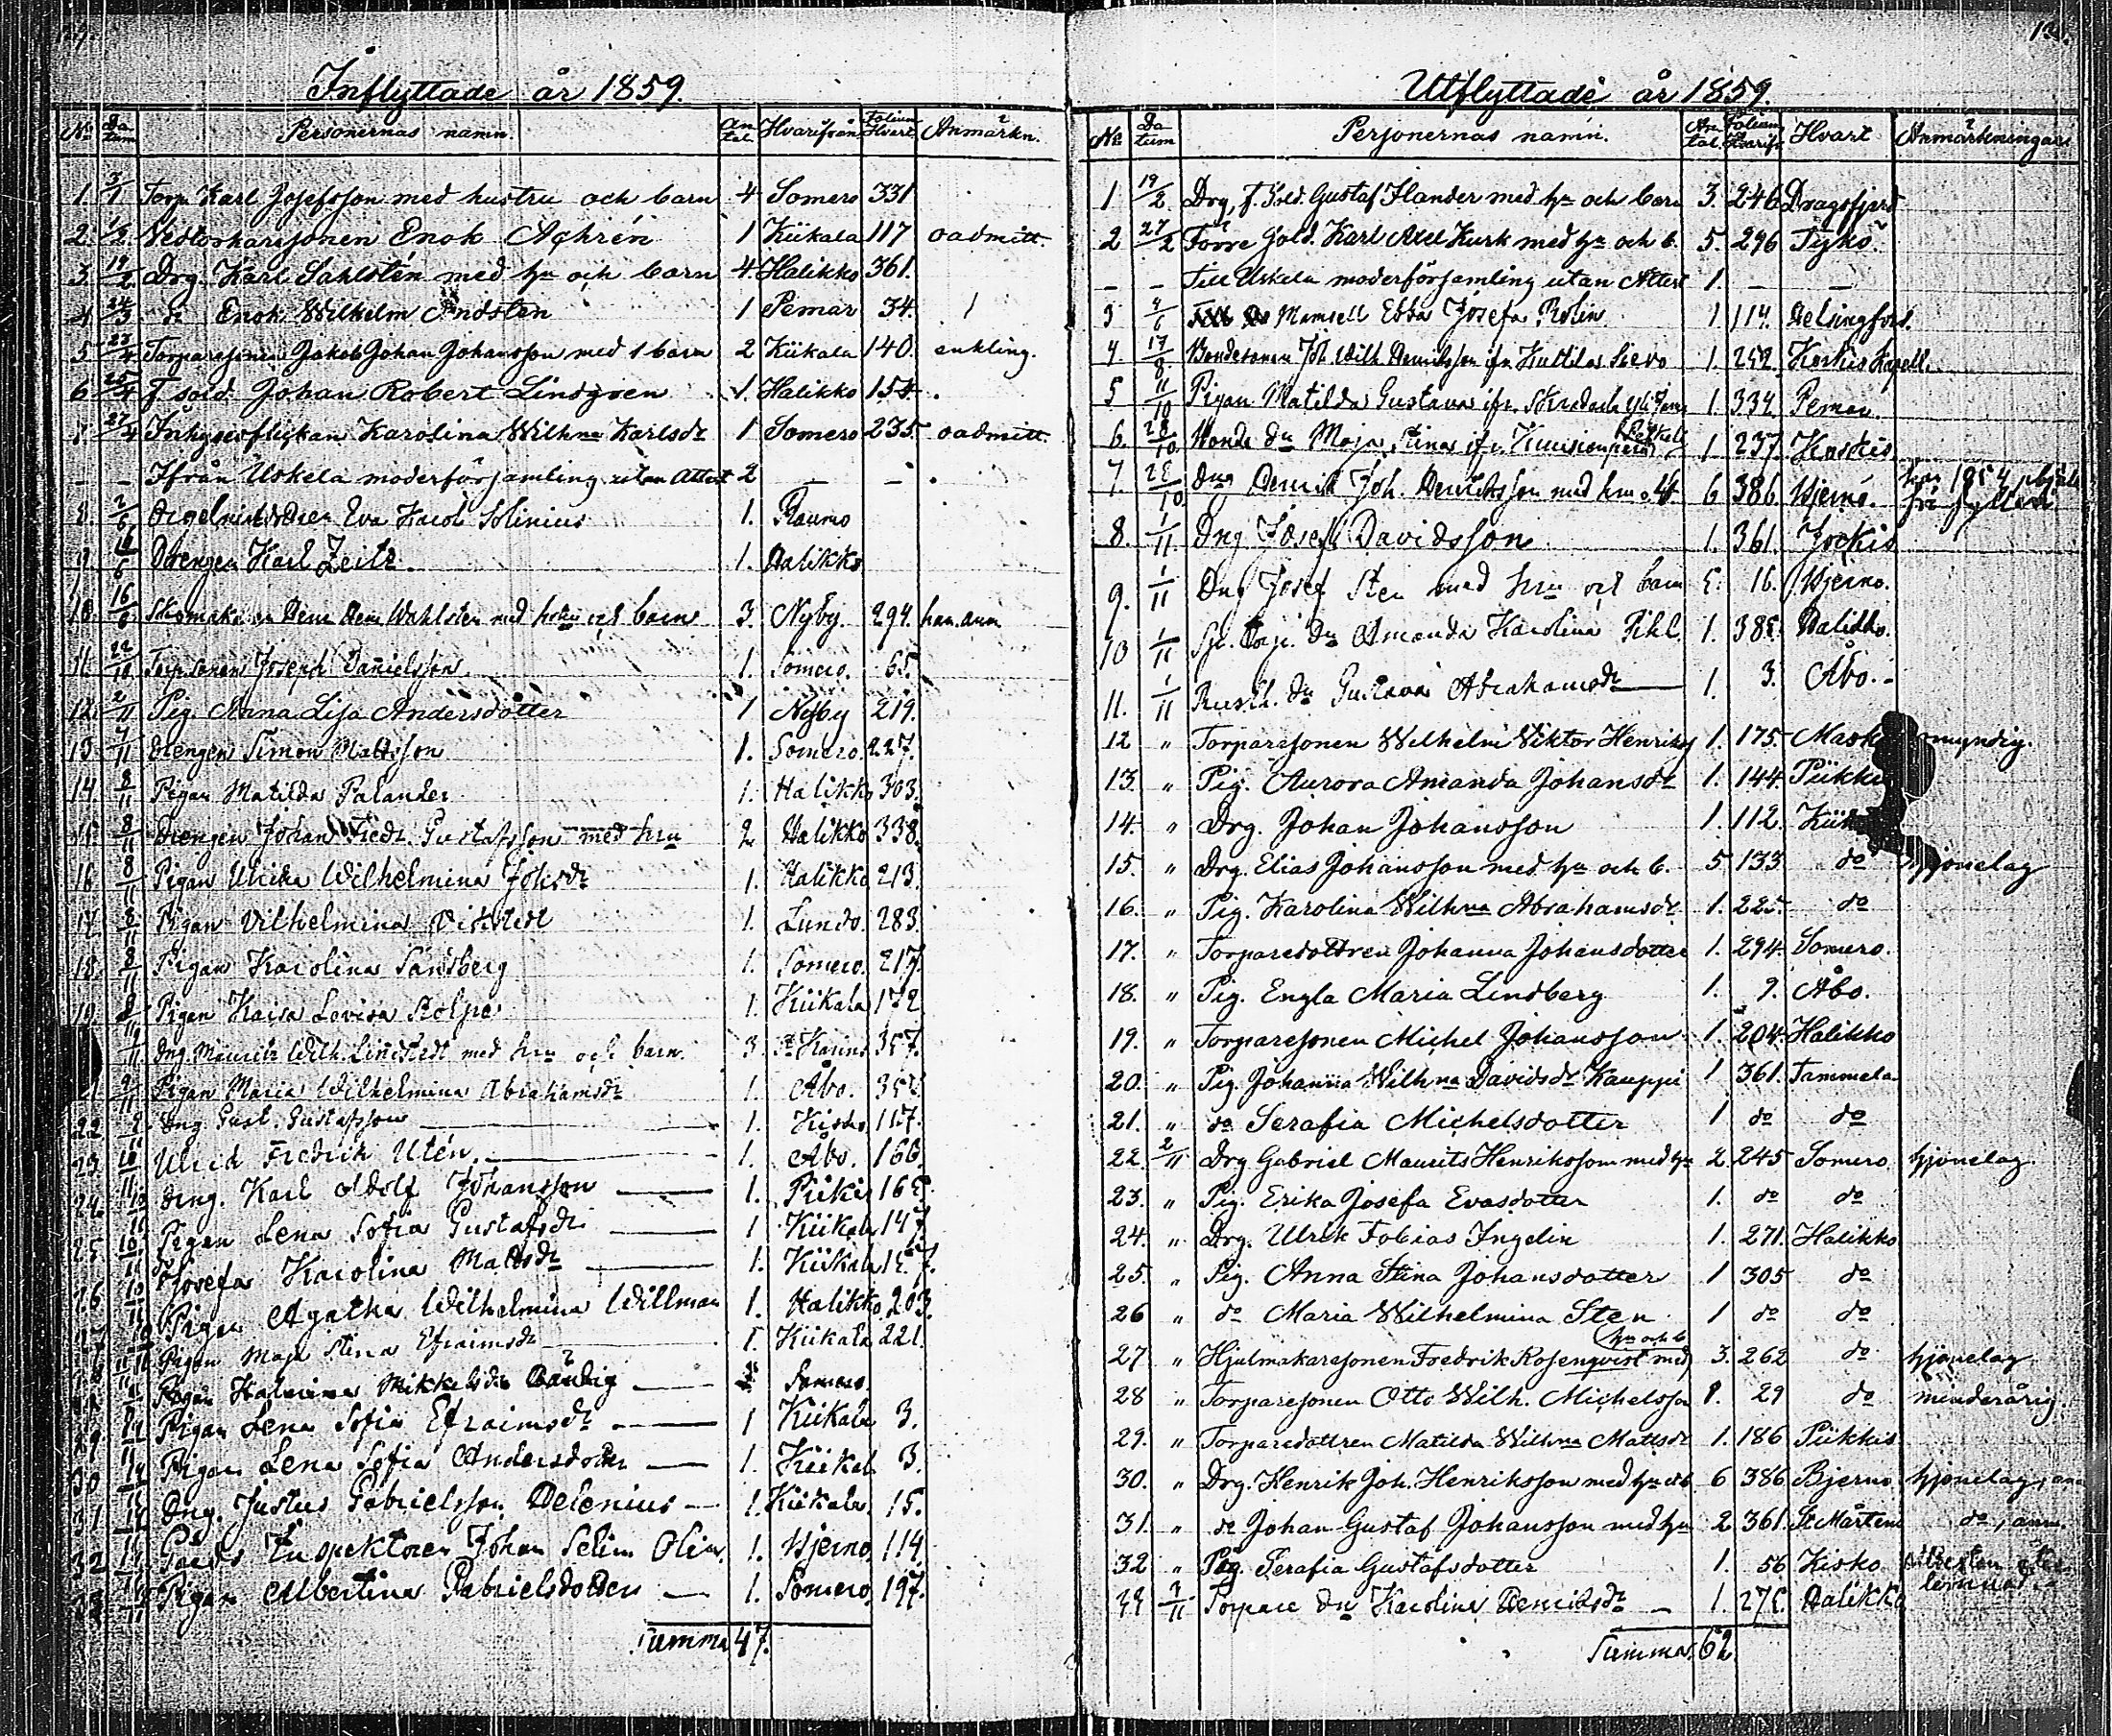 Inflyttade år 1859.
No Datum Personernas namn. Antal. Hvarifrån Folium Hvart Anmärkn.
1. 3/1 Torp. Karl Josefsson med hustru och barn 4 Somero 331
2. 1/2 Enok 1 Kiikala 117 oadmitt.
3. 19/2 Drg. Karl Sahlstén med hu och barn 4. Halikko 361.
4 24/3 do Enok Wilhelm Lindsten 1 Pemar 34.
5 Torparesonen Jakob Johan Johansson med 1 barn 2 Kiikala 140. enkling.
6 25/4 f. sold. Johan Robert Lindgren 1. Halikko 154
27/4 Inhysesflickan Karolina Wilhna Karlsdr 1 Somero 235. oadmitt.
– – Ifrån Uskela moderförsamling utan Attest 2 – –
8. 2/6 Eva Karol Solinius 1. Raumo
9. Drengen Karl Zeitz 1. Halikko
10. 16/ Wahlsten med och barn 3. Nyby. 294.
11. 22/10 Torp.sonen Joseph Danielsson 1. Somero. 65.
12. 2/11 Pig. Anna Lisa Andersdotter 1 Nyby 219.
13 Drengen Simon Mattsson 1. Somero. 227.
14. 8/11 Pigan Matilda Palander 1. Halikko 303.
15. 8/11 Drengen Johan Fredr. Gustafsson med hru 2. Halikko 338.
16 8/11 Pigan Ulrika Wilhelmina Johsdr 1. Halikko 213.
17. 8/11 Pigan Vilhelmina 1. Lundo. 283.
18. 8/11 Pigan Karolina Sandberg 1. Somero. 217.
19. 8/11 Pigan Kaisa Lovisa Stolpe 1. Kiikala 172
Drg. Mauritz Wilh. Lindstedt med hru och barn. 3. St Karins 357.
Pigan Maria Wilhelmina Abrahamsdr 1. Åbo.
22. Drg. Gust. Gustafsson 1. Kisko 117.
23. Ulrik Fredrik Utén. 1. Åbo. 166.
24. Dreng. Karl Adolf Johansson 1. Piikis
25. Pigan Lena Sofia Gustafsdr 1 Kiikala
Josefa Karolina Mattsdr 1. Kiikala
26. Pigan Agatha Wilhelmina Willman 1. Halikko. 203.
27. Pigan Maja Stina Efraimsdr 1. Kiikala 221.
Pigan Mikkelsdr Somero.
29. Pigan Lena Sofia Efraimsdr 1 Kiikala 3.
30 Pigan Lena Sofia Andersdotter 1. Kiikal 3.
31. Drg. Justus Gabrielsson Helenius 1. Kiikala 15.
32. Inspektoren Johan Selim Olin. 1. Bjerno. 114.
33. Pigan Albertina Gabrielsdotter 1. Somero. 197.
Summa 47.
Utflyttade år 1859.
No Datum Personernas namn. Antal. Folium Hvarifr Hvart Anmärkningar
1 19/2. Drg, f. Sold. Gustaf Flander med hu och barn 3. 246 Dragsfjerd
2 27/2 Karl Axel Kurk med hu och b. 5. 296 Tykö.
– – Till Uskela moderförsamling utan Attest 1. – –
3 Mamsell Ebba Josefa Rolin 1 114. Helsingfors.
4. 17/8. Bondesonen Joh. Wilh. Henriksson ifr. Kuttila 1. 252. Koskis Kapell.
5 11/10 Pigan Matilda Gustava ifr. 1. 334. Pemar.
6. 28/10. Bonde dr Maja Stina ifr. 1 237. Koskis.
7. Drg Henrik Joh. Henriksson med hru o. 6 386. Bjerno.
8. 1/11. Drg Josef Davidsson 1. 361. Jockis
9. 1/11 Drg Josef Sten med hru och barn 5. 16. Bjerno.
10 1/11 Amanda Karolina Pihl. 1. 385. Halikko.
11. 1/11 Rusth. dr Gustava Abrahamsdr 1. 3. Åbo.
12 " Torparesonen Wilhelm Viktor Henriks 1. 175. Mask myndig.
13. " Pig. Aurora Amanda Johansdr 1. 144. Piikki
14. " Drg. Johan Johansson 1. 112. Kiik
15. " Drg. Elias Johansson med hu och b. 5 133 do hjonelag
16. " Pig. Karolina Wilhna Abrahamsdr 1. 225. do
17. " Torparedottren Johanna Johansdotter 1. 294. Somero.
18. " Pig. Engla Maria Lindberg 1. 9. Åbo.
19. " Torparesonen Michel Johansson 1. 204. Halikko
20. " Pig. Johanna Wilhna Davidsdr Kauppi 1 361. Tammela
21. " do Serafia Michelsdotter 1 do do
22. 2/11 Drg Gabriel Maurits Henriksson med hu 2 245 Somero hjonelag.
23. " Pig. Erika Josefa Evasdotter 1. do do
24. " Drg. Ulrik Tobias Ingelin 1. 271. Halikko
25. " Pig. Anna Stina Johansdotter 1 305 do
26 " do Maria Wilhelmina Sten 1 do do
27 " Hjulmakaresonen Fredrik Rosenqvist med hu och b 3. 262 do hjonelag
28 " Torparesonen Otto Wilh. Michelsson 1. 29 do minderårig.
29. " Torparedottren Matilda Wilhna Mattsdr 1. 186 Piikkis
30. " Drg. Henrik Joh. Henriksson med hu och b 6 386 Bjerno hjonelag, an
31. " do Johan Gustaf Johansson med hu 2 361. St Mårtens do, anm.
32 " Pig. Serafia Gustafsdotter 1. 56 Kisko
33 Torpare dr Karolina Henriksdr 1. Halikko
Summa 62